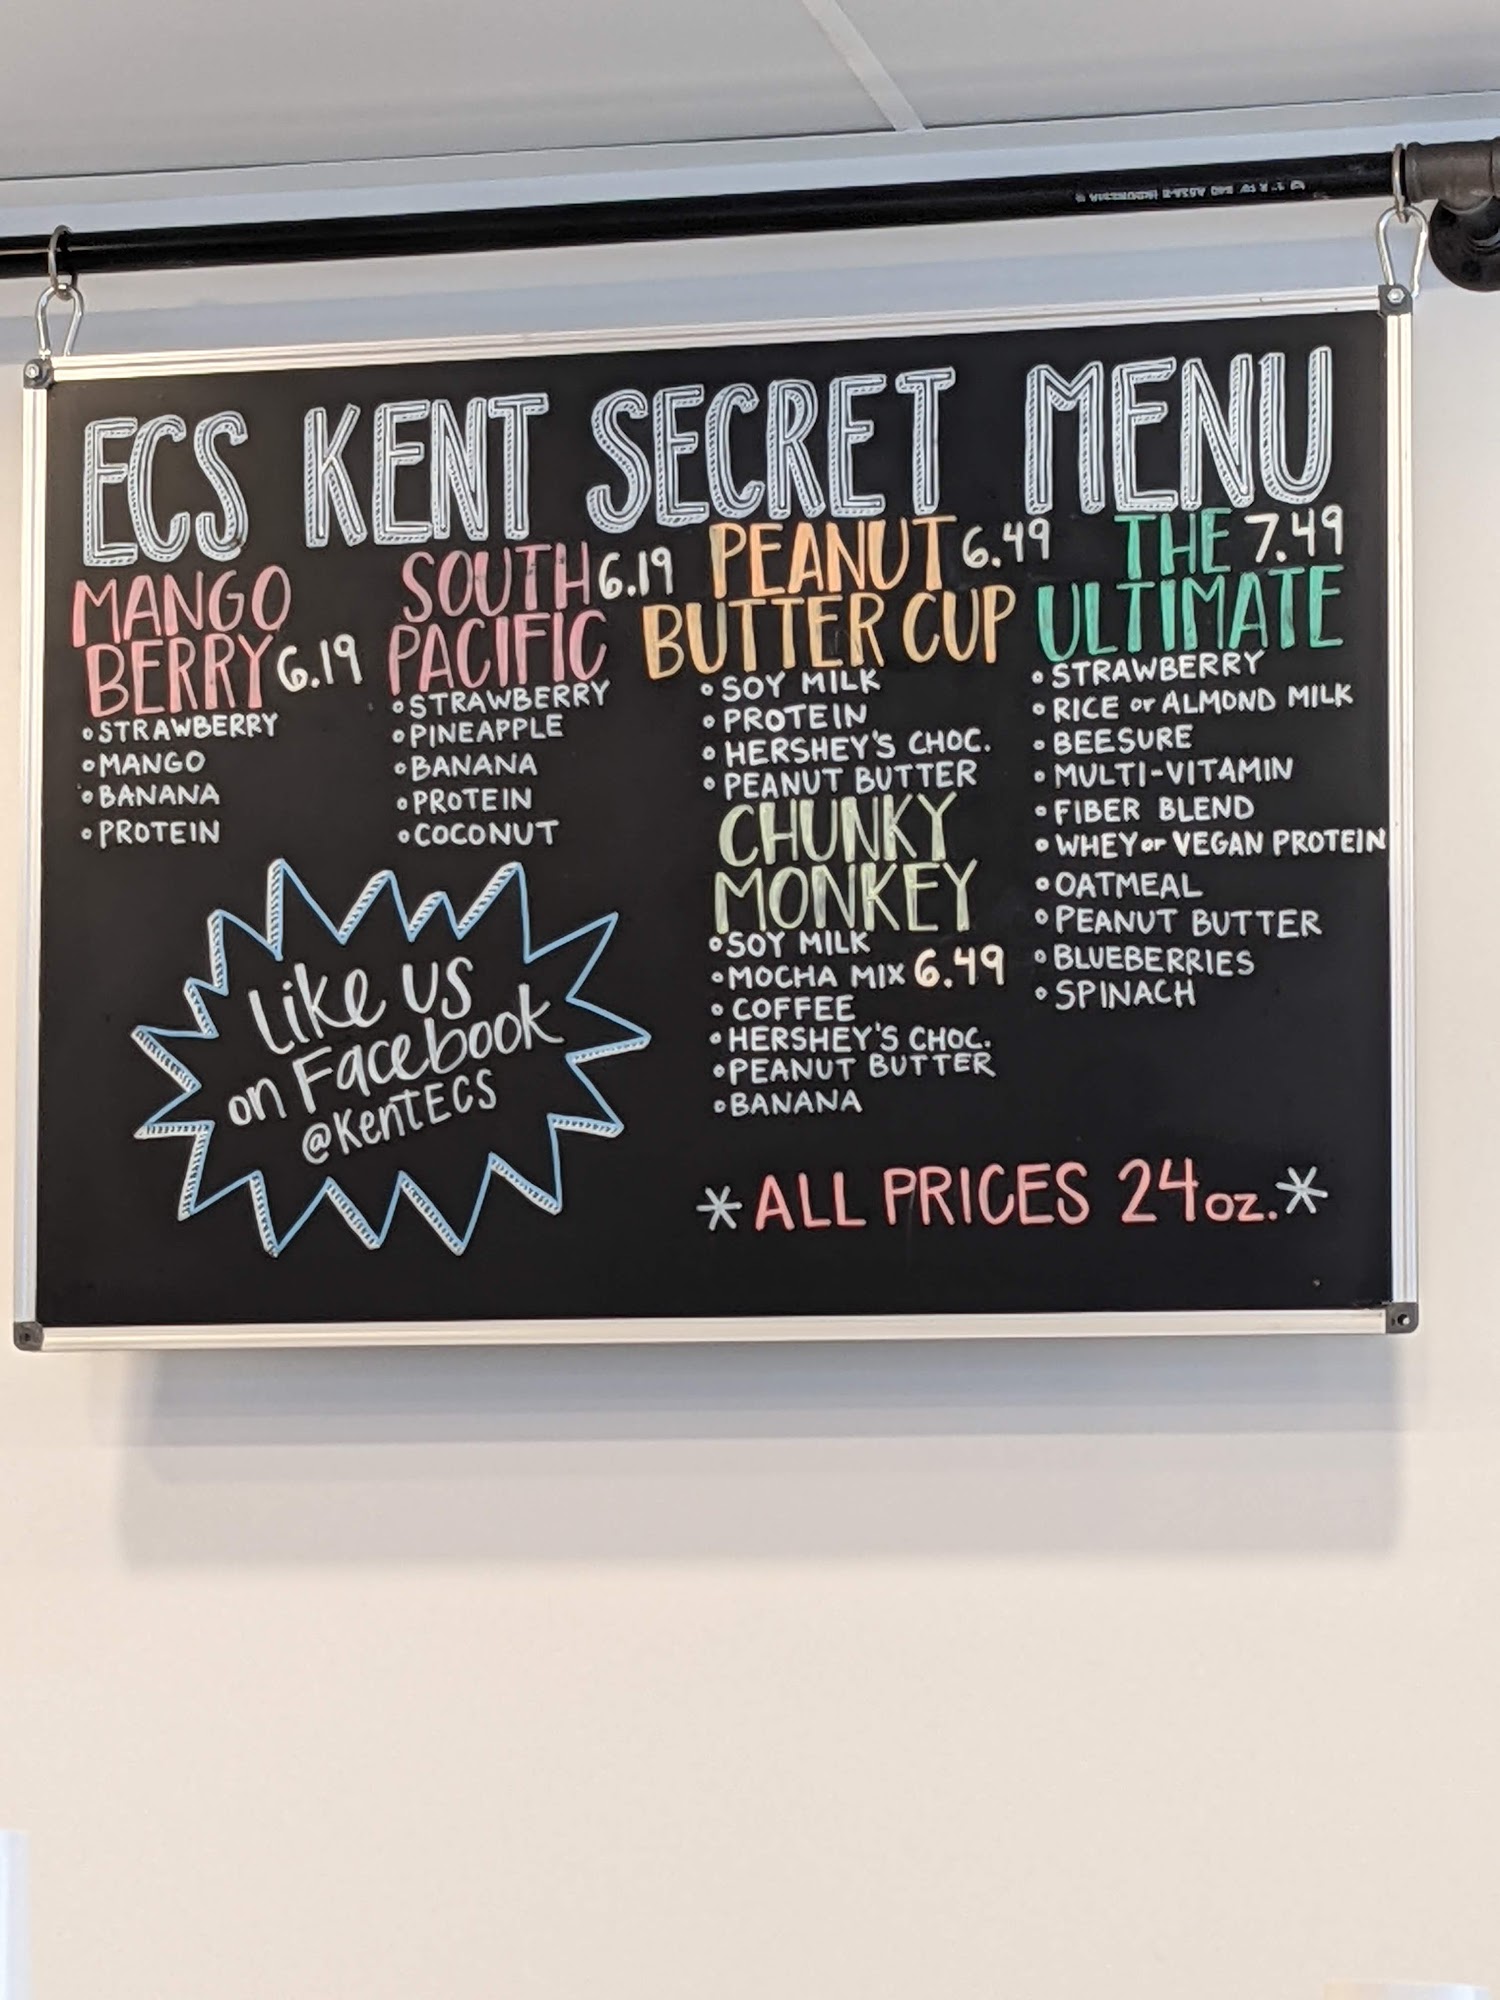 ECS KENT SECRET MENU
MANGO
BERRY 6.19
◦STRAWBERRY
◦MANGO
◦BANANA
◦PROTEIN
SOUTH 6.19
PACIFIC
◦STRAWBERRY
◦PINEAPPLE
◦BANANA
◦PROTEIN
◦COCONUT
PEANUT 6.49
BUTTER CUP
◦SOY MILK
◦PROTEIN
◦HERSHEY'S CHOC.
◦PEANUT BUTTER
CHUNKY
MONKEY
◦SOY MILK
◦MOCHA MIX 6.49
◦COFFEE
◦HERSHEY'S CHOC.
◦PEANUT BUTTER
◦BANANA
THE 7.49
ULTIMATE
◦STRAWBERRY
◦RICE or ALMOND MILK
◦BEESURE
◦MULTI-VITAMIN
◦FIBER BLEND
◦WHEY or VEGAN PROTEIN
◦OATMEAL
◦PEANUT BUTTER
◦BLUEBERRIES
◦SPINACH
Like us
on Facebook
@KentECS
*ALL PRICES 24oz.*